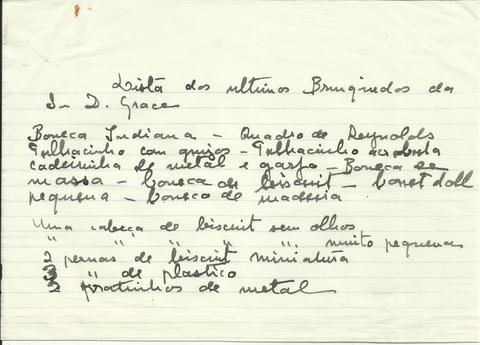 Lista dos ultimos Brinquedos da
Sr. D. Grace
Boneca Indiana — Quadro de Reynolds
Palhacinho com guisos — Palhacinho acrobata
cadeirinha de metal e garfo — Boneca de
massa — boneca de biscuit — bonet doll
pequena — boneco de madeira
Uma cabeça de biscuit sem olhos
" " " " ". muito pequena
2 pernas de biscuit miniatura
3 " de plastico
2 pratinhos de metal